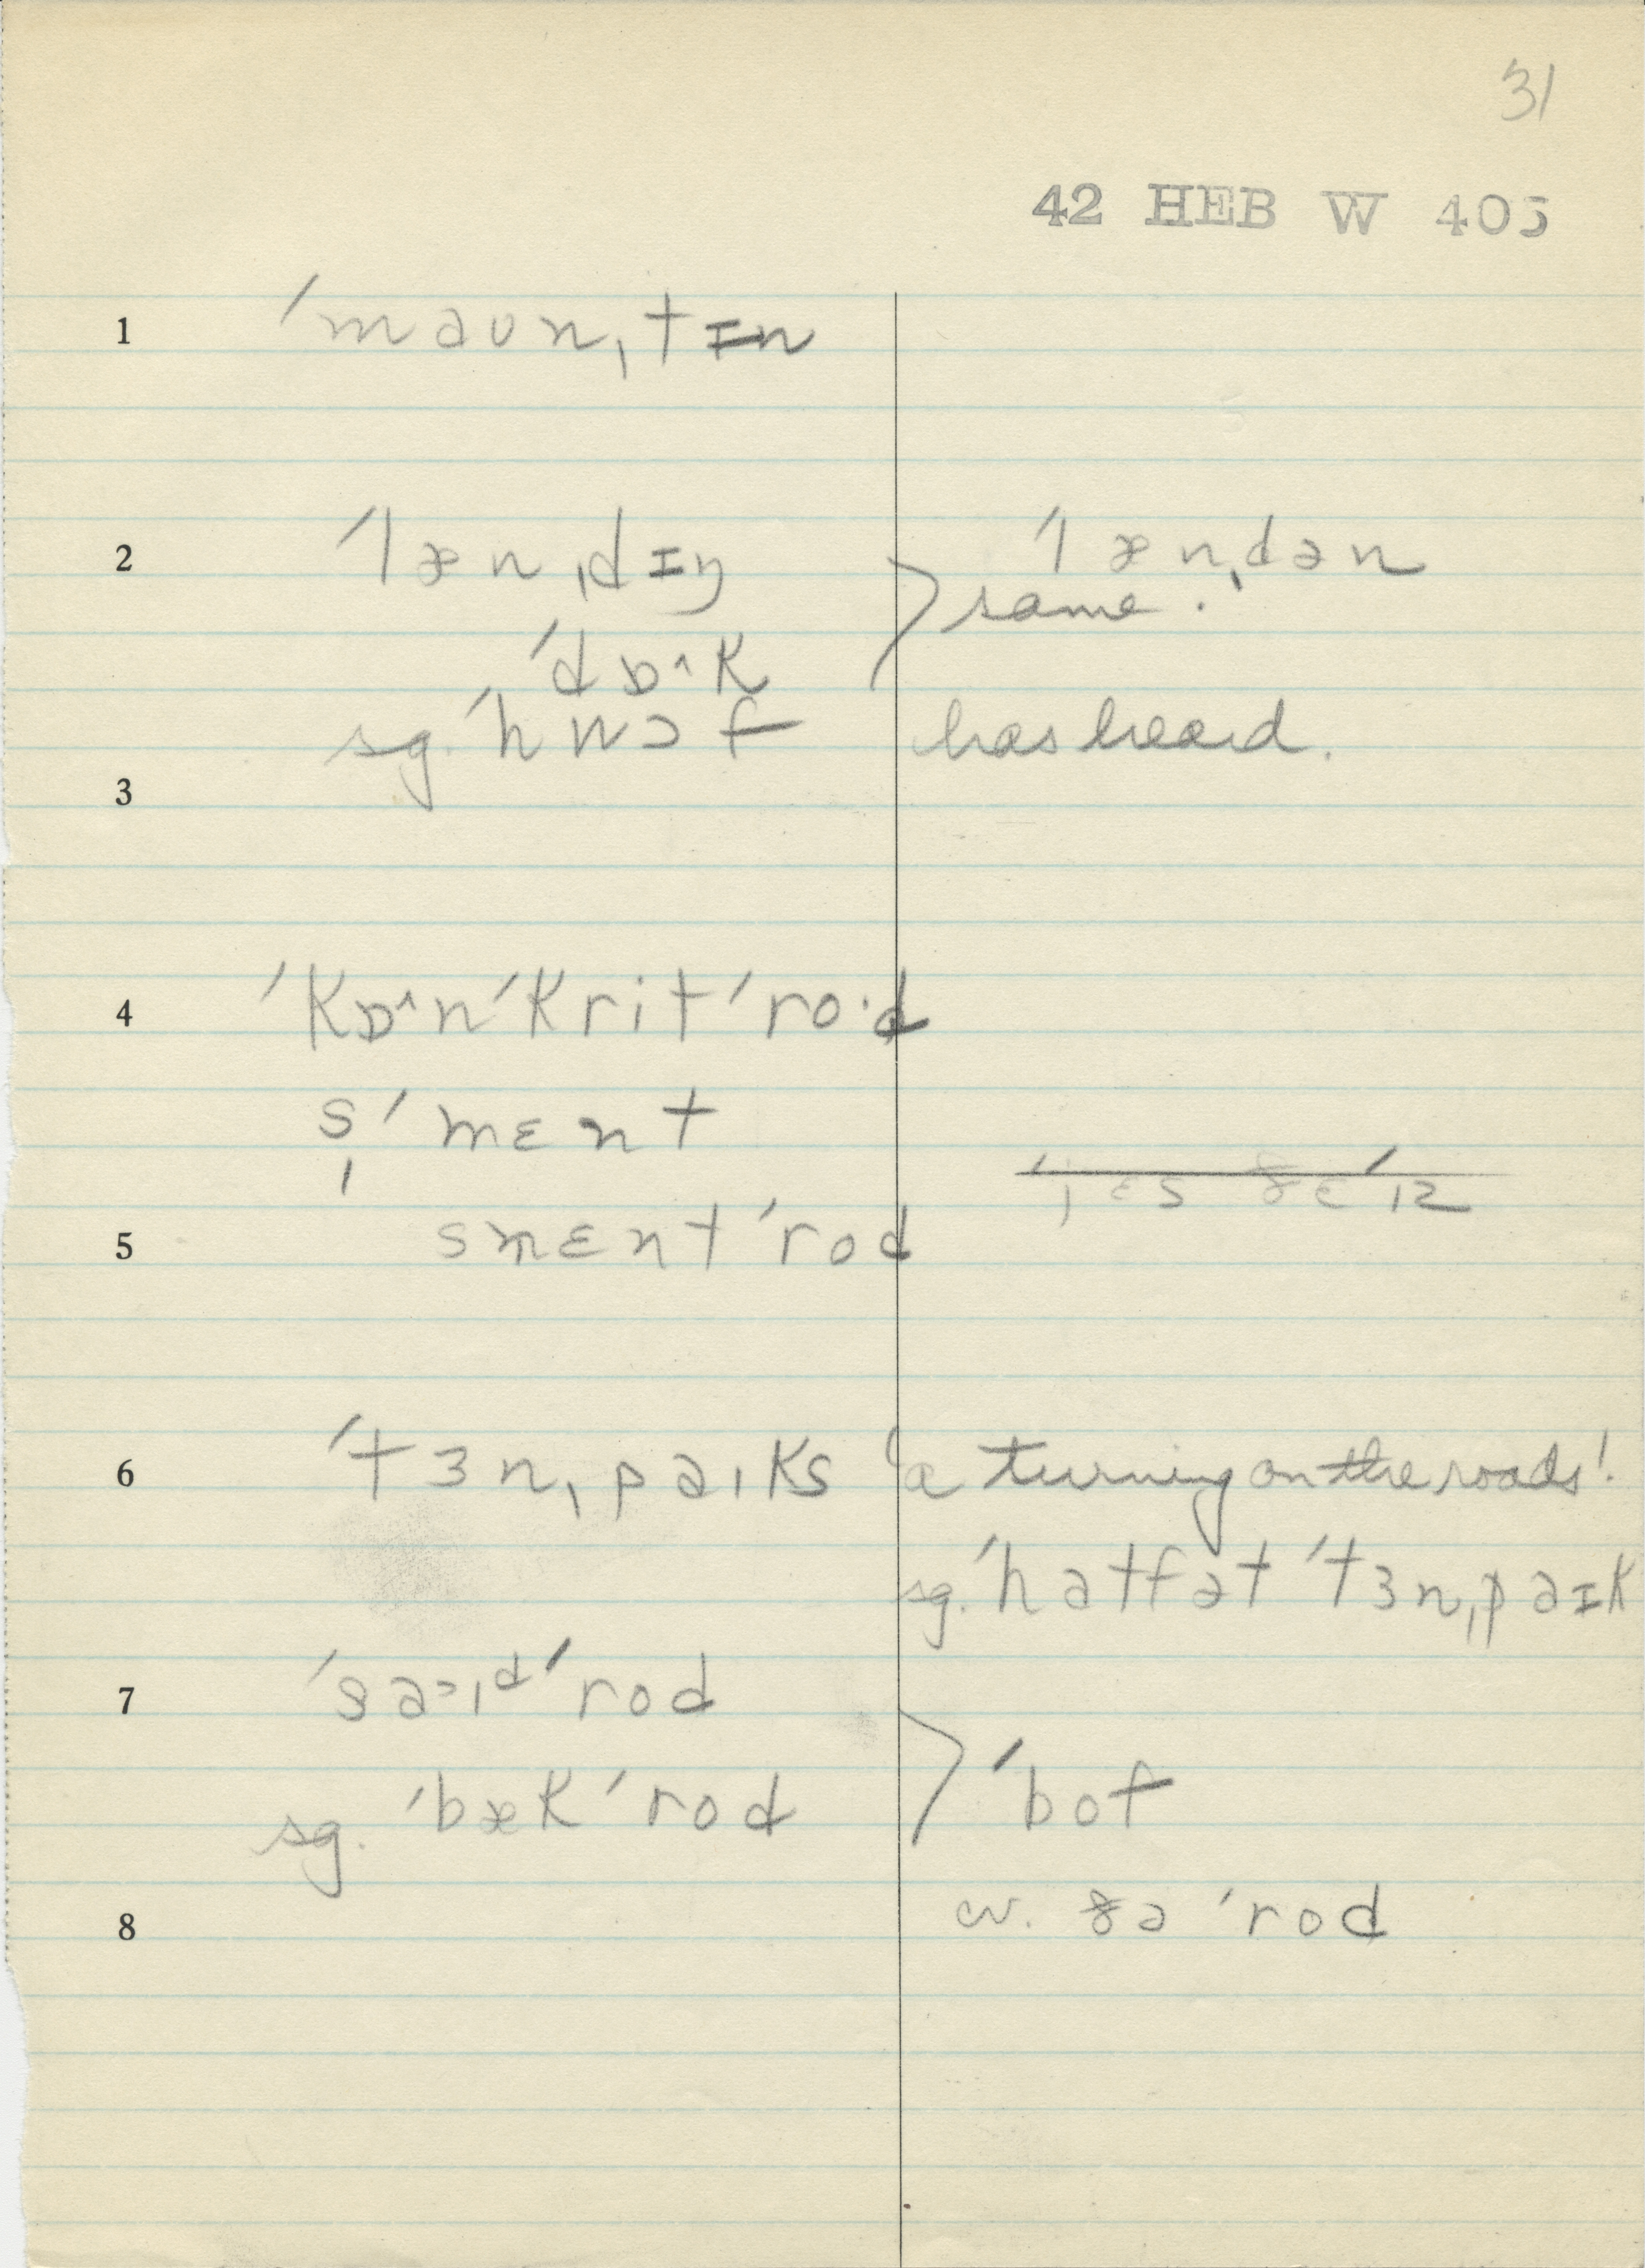 31
42 HEB W 405
1 ˈmaʊnˌtɪn
2 ˈlænˌdɪŋ ˈlænˌdən
same.
ˈdɒ˄k
sg. ˈhwɔf has heard.
3
4 ˈkɒ˄nˈkritˈro·d
sˈmɛnt
5 smɛntˈrod
6 ˈtɜnˌpaɪks 'a turning on the roads'.
sg. ˈhatfət ˈtɜnˌpaɪk
7 ˈsa˃ɪᵈˈrod
sg. ˈbækˈrod ˈbof
8 cv. ðəˈrod